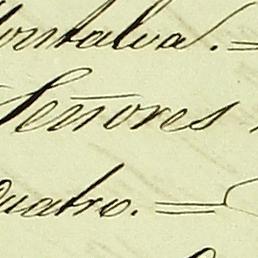 Montalva. =
Señores
Quatro. =